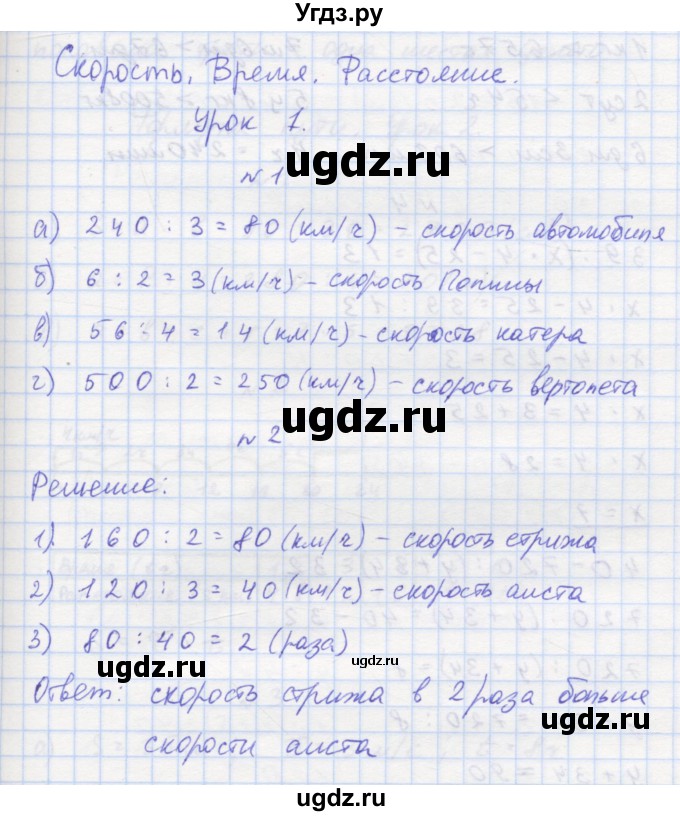 Угдз.ру
Скорость. Время. Расстояние.
Урок 1.
ugdz.ru
№ 1
а) 240 : 3 = 80 (км/ч) – скорость автомобиля
б) 6 : 2 = 3 (км/ч) – скорость Полины
в) 56 : 4 = 14 (км/ч) – скорость катера
г) 500 : 2 = 250 (км/ч) – скорость вертолета
ugdz.ru
№ 2
Решение:
1) 160 : 2 = 80 (км/ч) – скорость стрижа
2) 120 : 3 = 40 (км/ч) – скорость аиста
3) 80 : 40 = 2 (раза)
ugdz.ru
ugdz.ru
Ответ: скорость стрижа в 2 раза больше
ugdz.ru
скорости аиста
ugdz.ru
ugdz.ru